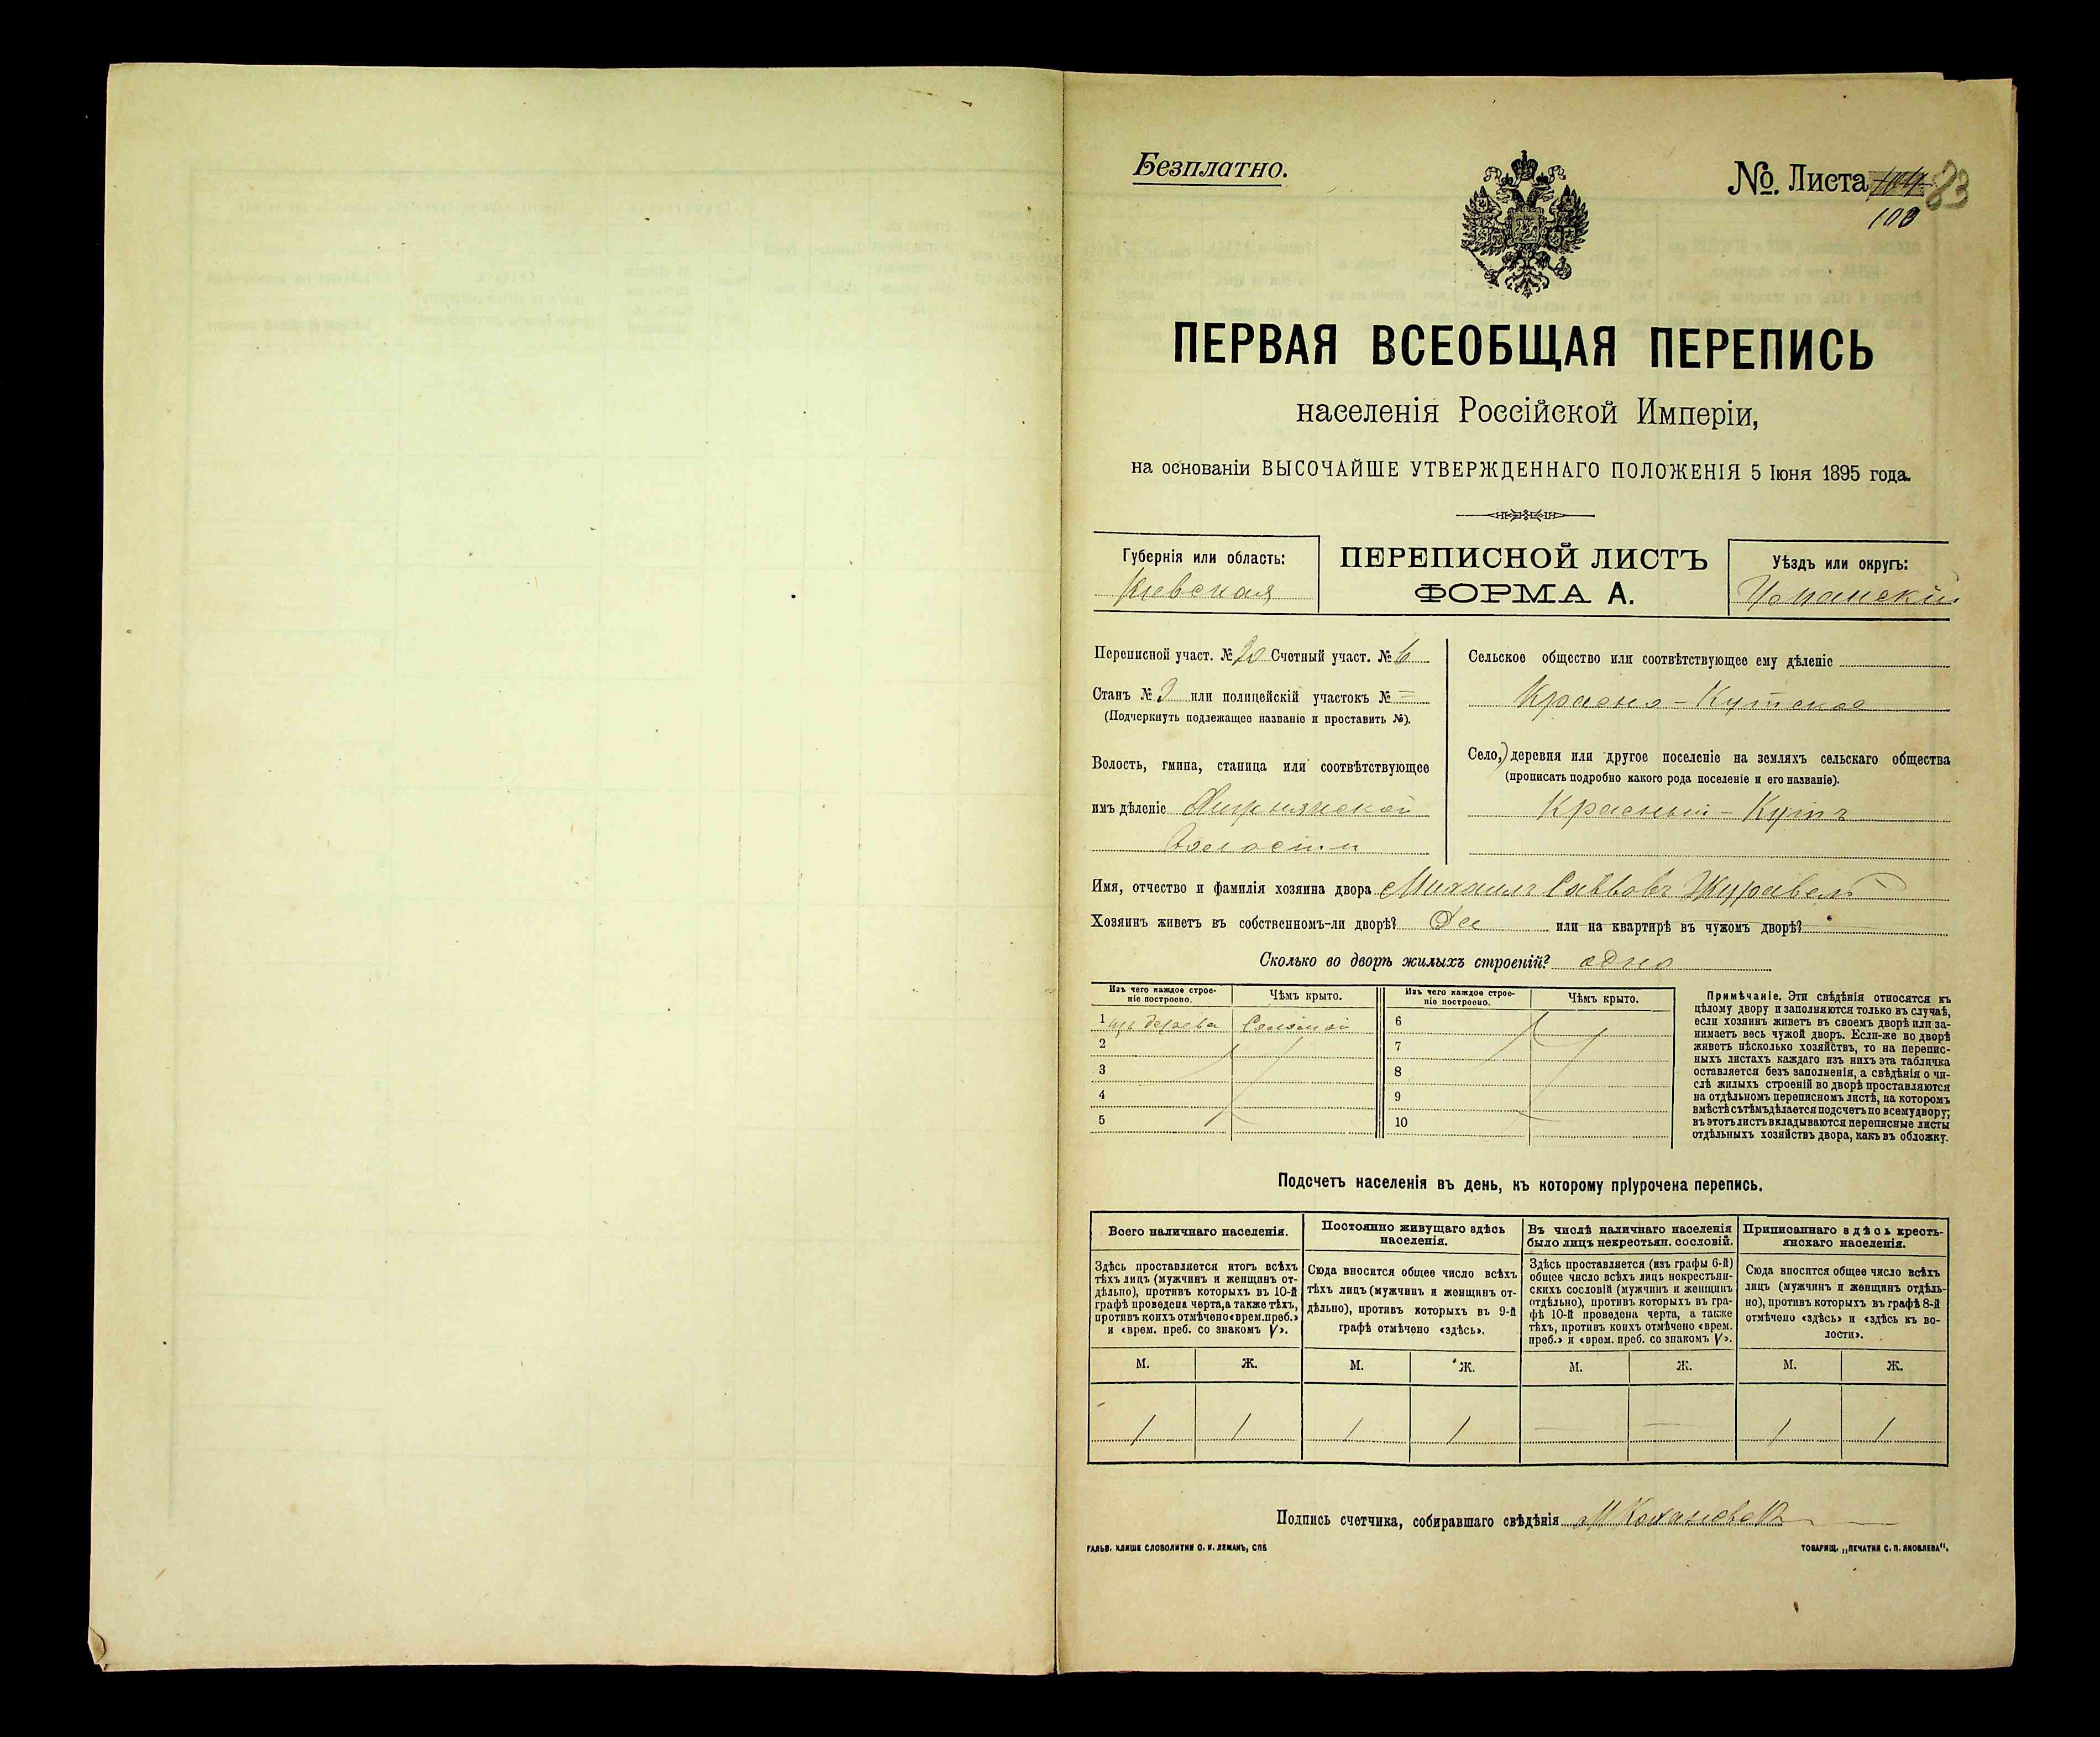 Безплатно.
№. Листа 104 83
103
ПЕРВАЯ ВСЕОБЩАЯ ПЕРЕПИСЬ
населенія Россійской Имперіи,
на основаніи ВЫСОЧАЙШЕ УТВЕРЖДЕННАГО ПОЛОЖЕНІЯ 5 Іюня 1895 года.
Губернія или область:
Кіевская
ПЕРЕПИСНОЙ ЛИСТЪ
ФОРМА А.
Уѣздъ или округъ:
Уманскій
Переписной участ. № 20 Счетный участ. № 6
Станъ № 3 или полицейскій участокъ № =
(Подчеркнуть подлежащее названіе и проставить №).
Волость, гмина, станица или соотвѣтствующее
имъ дѣленіе
Волости
Сельское общество или соотвѣтствующее ему дѣленіе
Красно-Кутское
Село, деревня или другое поселеніе на земляхъ сельскаго общества
(прописать подробно какого рода поселеніе и его названіе).
Красный-Кутъ
Имя, отчество и фамилія хозяина двора Михаилъ Саввовъ Журавель
Хозяинъ живетъ въ собственномъ-ли дворѣ? Да или на квартирѣ въ чужомъ дворѣ?
Сколько во дворѣ жилыхъ строеній? одно
Изъ чего каждое строе-
ніе построено.
Чѣмъ крыто.
Изъ чего каждое строе-
ніе построено.
Чѣмъ крыто.
1 изъ дерева Соломой 6
2 7
3 8
4 9
5 10
Примѣчаніе. Эти свѣдѣнія относятся къ
цѣлому двору и заполняются только въ случаѣ,
если хозяинъ живетъ въ своемъ дворѣ или за-
нимаетъ весь чужой дворъ. Если-же во дворѣ
живетъ нѣсколько хозяйствъ, то на перепис-
ныхъ листахъ каждаго изъ нихъ эта табличка
оставляется безъ заполненія, а свѣдѣнія о чи-
слѣ жилыхъ строеній во дворѣ проставляются
на отдѣльномъ переписномъ листѣ, на которомъ
вмѣстѣ съ тѣмъ дѣлается подсчетъ по всему двору;
въ этотъ листъ вкладываются переписные листы
отдѣльныхъ хозяйствъ двора, какъ въ обложку.
Подсчетъ населенія въ день, къ которому пріурочена перепись.
Всего наличнаго населенія.
Здѣсь проставляется итогъ всѣхъ
тѣхъ лицъ (мужчинъ и женщинъ от-
дѣльно), противъ которыхъ въ 10-й
графѣ проведена черта, а также тѣхъ,
противъ коихъ отмѣчено «врем. преб.»
и «врем. преб. со знакомъ V».
Постоянно живущаго здѣсь
населенія.
Сюда вносится общее число всѣхъ
тѣхъ лицъ (мужчинъ и женщинъ от-
дѣльно), противъ которыхъ въ 9-й
графѣ отмѣчено «здѣсь».
Въ числѣ наличнаго населенія
было лицъ некрестьян. сословій.
Здѣсь проставляется (изъ графы 6-й)
общее число всѣхъ лицъ некрестьян-
скихъ сословій (мужчинъ и женщинъ
отдѣльно), противъ которыхъ въ гра-
фѣ 10-й проведена черта, а также
тѣхъ, противъ коихъ отмѣчено «врем.
преб.» и «врем. преб. со знакомъ V».
Приписаннаго здѣсь кресть-
янскаго населенія.
Сюда вносится общее число всѣхъ
лицъ (мужчинъ и женщинъ отдѣль-
но), противъ которыхъ въ графѣ 8-й
отмѣчено «здѣсь» и «здѣсь къ во-
лости».
М. Ж. М. Ж. М. Ж. М. Ж.
1 1 1 1 — — 1 1
Подпись счетчика, собиравшаго свѣдѣнія
ГАЛЬВ. КЛИШЕ СЛОВОЛИТНИ О. И. ЛЕМАНЪ, СПБ
ТОВАРИЩ. „ПЕЧАТНЯ С. П. ЯКОВЛЕВА".